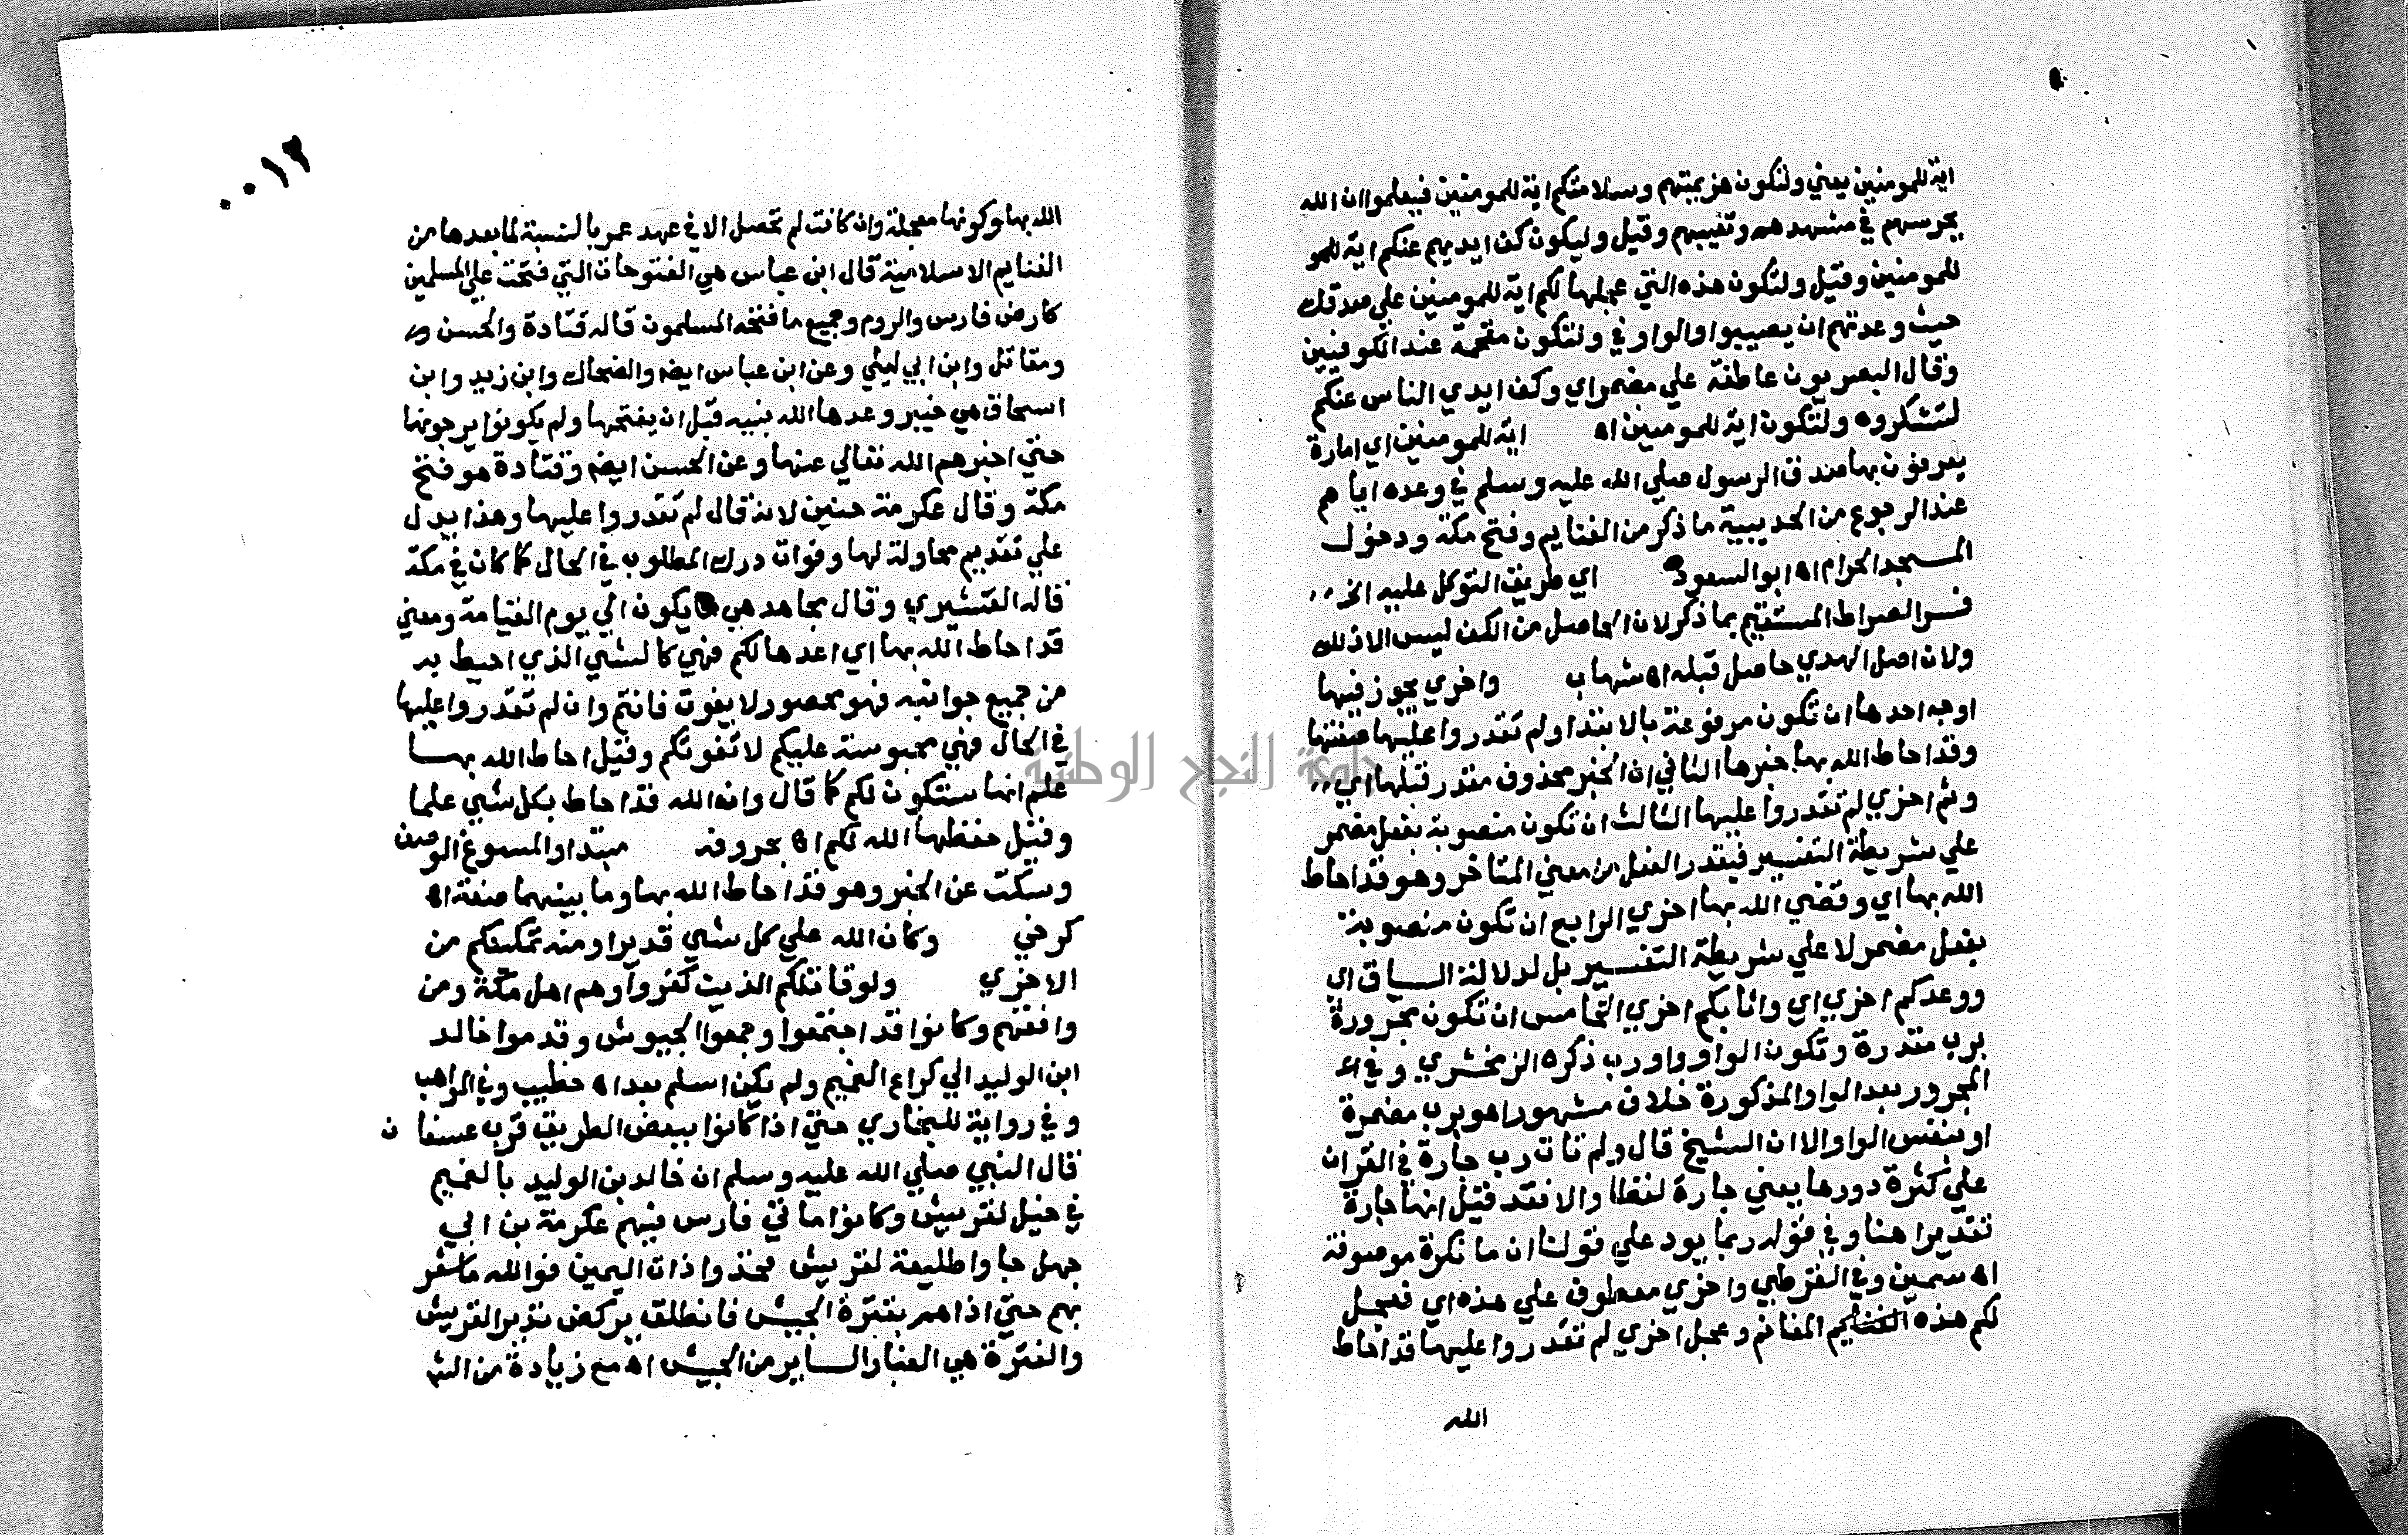 اية للمومنين يعني ولتكون هزيمتهم وسلامتكم اية للمومنين فيعلموا ان الله
يحرسهم في مشهدهم وتغيبهم وقيل وليكون كف ايديهم عنكم اية للمو
للمومنين وقيل ولتكون هذه التي عجلها لكم اية للمومنين علي صدقك
حيث وعدتهم ان يصيبوا والواو في ولتكون مقحمة عند الكوفيين
وقال البصريون عاطفة علي مضمر اي وكف ايدي الناس عنكم
لتشكروه ولتكون اية للمومنين اه اية للمومنين اي امارة
يعرفون بها صدق الرسول صلي الله عليه وسلم في وعده اياهم
عند الرجوع من الحديبية ما ذكر من الغنايم وفتح مكة ودخول
المسجد الحرام اه ابو السعود اي طريق التوكل عليه الخ
فسر الصراط المستقيم بما ذكر لان الحاصل من الكف ليس الا ذلك
ولان اصل الهدي حاصل قبله اه شهاب واخري يجوز فيها
اوجه احدها ان تكون مرفوعة بالابتدا ولم تقدروا عليها صفتها
وقد احاط الله بها خبرها الثاني ان الخبر محذوف مقدر قبلها اي
وثم اخري لم تقدروا عليها الثالث ان تكون منصوبة بفعل مضمر
علي شريطة التفسير فيقدر الفعل من معني المتاخر وهو قد احاط
الله بها اي وقضي الله بها اخري الرابع ان تكون منصوبة
بفعل مضمر لا علي شريطة التفسير بل لدلالة السياق اي
ووعدكم اخري اي واثابكم اخري الخامس ان تكون مجرورة
برب مقدرة وتكون الواو واو رب ذكره الزمخشري وفي
المجرور بعد الواو المذكورة خلاف مشهور اهو برب مضمرة
او بنفس الواو الا ان الشيخ قال ولم تات رب جارة في القران
علي كثرة دورها يعني جارة لفظا والا فقد قيل انها جارة
تقديرا هنا وفي قوله ربما يود علي قولنا ان ما نكرة موصوفة
اه سمين وفي القرطبي واخري معطوف علي هذه اي فعجل
لكم هذه المغانم وعجل اخري لم تقدروا عليها قد احاط
الله
٠٠١٢
الله بها وكونها معجلة وان كانت لم تحصل الا في عهد عمر بالنسبة لما بعدها من
الغنايم الاسلامية قال ابن عباس هي الفتوحات التي فتحت علي المسلمين
كارض فارس والروم وجميع ما فتحه المسلمون قاله قتادة والحسن
ومقاتل وابن ابي ليلي وعن ابن عباس ايضا والضحاك وابن زيد وابن
اسحاق هي خيبر وعدها الله نبيه قبل ان يفتحها ولم يكونوا يرجونها
حتي اخبرهم الله تعالي عنها وعن الحسن ايضا وقتادة هو فتح
مكة وقال عكرمة حنين لانه قال لم تقدروا عليها وهذا يدل
علي تقديم محاولة لها وفوات درك المطلوب في الحال كما كان في مكة
قاله القشيري وقال مجاهد هي ما يكون الي يوم القيامة ومعني
قد احاط الله بها اي اعدها لكم فهي كالشي الذي احيط به
من جميع جوانبه فهو محصور لا يفوت فانتم وان لم تقدروا عليها
في الحال فهي محبوسة عليكم لا تفوتكم وقيل احاط الله بها
علم انها ستكون لكم كما قال وان الله قد احاط بكل شي علما
وقيل حفظها الله لكم اه بحروفه مبتدا والمسوغ الوصف
وسكت عن الخبر وهو قد احاط الله بها وما بينهما صفة اه
كرخي وكان الله علي كل شي قديرا ومنه تمكينكم من
الاخري ولو قاتلكم الذين كفروا وهم اهل مكة ومن
وافقهم وكانوا قد اجتمعوا وجمعوا الجيوش وقدموا خالد
ابن الوليد الي كراع الغميم ولم يكن اسلم بعد اه خطيب وفي المواهب
وفي رواية للبخاري حتي اذا كانوا ببعض الطريق قرب عسفان
قال النبي صلي الله عليه وسلم ان خالد بن الوليد بالغميم
في خيل لقريش وكانوا مايتي فارس فيهم عكرمة بن ابي
جهل جاوا طليعة لقريش فخذوا ذات اليمين فوالله ما شعر
بهم حتي اذا هم بقترة الجيش فانطلق يركض نذيرا لقريش
والقترة هي الغبار الساير من الجيش اه مع زيادة من
جامعة النجاح الوطنية